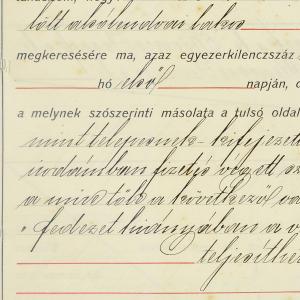 tött alsólendvai lakos
megkeresésére ma, azaz egyezerkilenczszáz
hó első napján,
a melynek szószerinti másolata a tulsó oldal
mint telepesnek - kifejezett
irodámban fizetés végett
a mire tőle a következő
fedezet hiányában a
teljesíthe